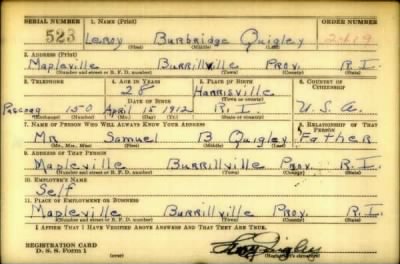 SERIAL NUMBER 1. NAME (Print) ORDER NUMBER
523 Leroy Burbridge Quigley
(First) (Middle) (Last)
2. ADDRESS (Print)
Mapleville Burrillville Prov. R.I.
(Number and street or R. F. D. number) (Town) (County) (State)
3. TELEPHONE 4. AGE IN YEARS 5. PLACE OF BIRTH 6. COUNTRY OF CITIZENSHIP
28 Harrisville
DATE OF BIRTH (Town or county)
Pascoag 150 April 15 1912 R.I. U.S.A.
(Exchange) (Number) (Mo.) (Day) (Yr.) (State or country)
7. NAME OF PERSON WHO WILL ALWAYS KNOW YOUR ADDRESS 8. RELATIONSHIP OF THAT PERSON
Mr Samuel B Quigley Father
(Mr., Mrs., Miss) (First) (Middle) (Last)
9. ADDRESS OF THAT PERSON
Mapleville Burrillville Prov. R.I.
(Number and street or R. F. D. number) (Town) (County) (State)
10. EMPLOYER'S NAME
Self
11. PLACE OF EMPLOYMENT OR BUSINESS
Mapleville Burrillville Prov. R.I.
(Number and street or R. F. D. number) (Town) (County) (State)
I AFFIRM THAT I HAVE VERIFIED ABOVE ANSWERS AND THAT THEY ARE TRUE.
REGISTRATION CARD
D. S. S. Form 1 (over) (Registrant's signature)